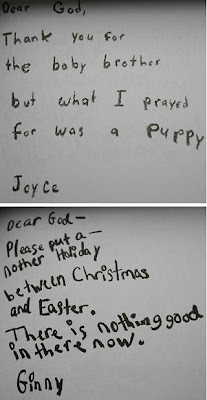 Dear God,
Thank you for
the baby brother
but what I prayed
for was a puppy
Joyce
Dear God—
Please put a—
nother Holiday
between Christmas
and Easter.
There is nothing good
in there now.
Ginny